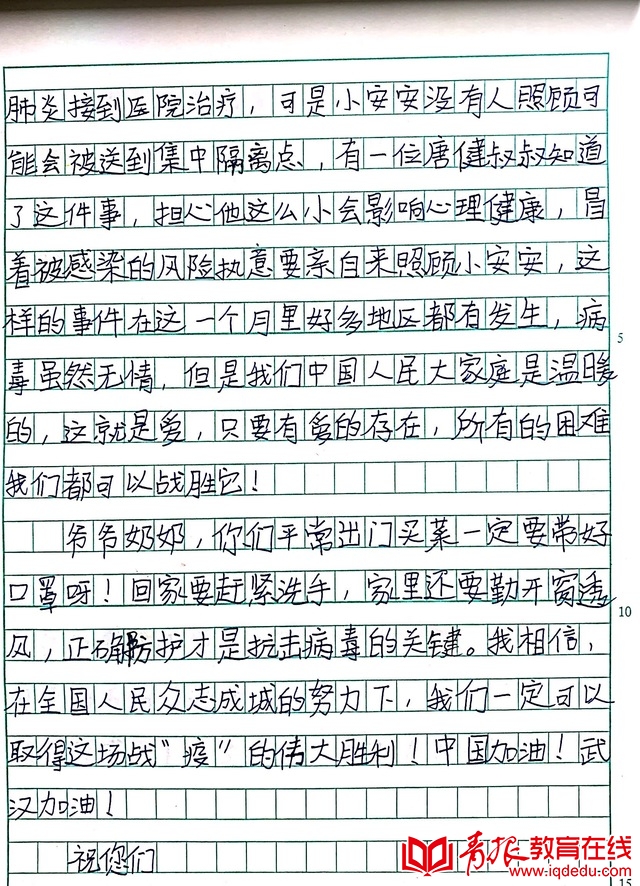 肺炎接到医院治疗，可是小安安没有人照顾可
能会被送到集中隔离点，有一位唐健叔叔知道
了这件事，担心他这么小会影响心理健康，冒
着被感染的风险执意要亲自来照顾小安安，这
样的事件在这一个月里好多地区都有发生，病
5
毒虽然无情，但是我们中国人民大家庭是温暖
的，这就是爱，只要有爱的存在，所有的困难
我们都可以战胜它！
爷爷奶奶，你们平常出门买菜一定要带好
口罩呀！回家要赶紧洗手，家里还要勤开窗透
10
风，正确防护才是抗击病毒的关键。我相信，
在全国人民众志成城的努力下，我们一定可以
取得这场战“疫”的伟大胜利！中国加油！武
汉加油！
祝您们
青报教育在线
www.iqdedu.com
15